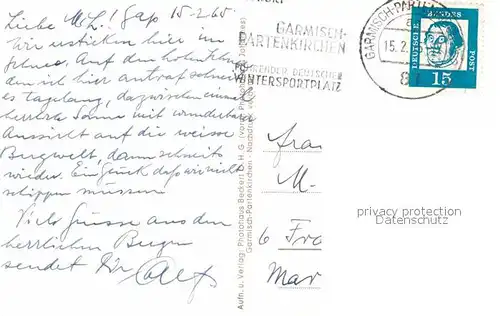 Liebe M.L.! Gap 15.2.65
Wir ersticken hier im
Schnee. Auf den hohen
den ich hier antraf schneit
es tagelang, dazwischen einmal
herrliche Sonne mit wunderbarer
Aussicht auf die weisse
Bergwelt, dann schneits
wieder. Ein Glück dass wir nicht
schippen müssen
Viele Grüsse aus den
herrlichen Bergen
sendet Dir
GARMISCH-
PARTENKIRCHEN
DEUTSCHER
WINTERSPORTPLATZ
GARMISCH-PARTE
15.2.
DEUTSCHE BUNDESPOST
15
Aufn. u. Verlag: Photohaus Beckert O.H.G. (vorm. Photohaus Johannes)
Garmisch-Partenkirchen - Nachdruck
Frau
M.
privacy protection
Datenschutz
6 Fr
Mar